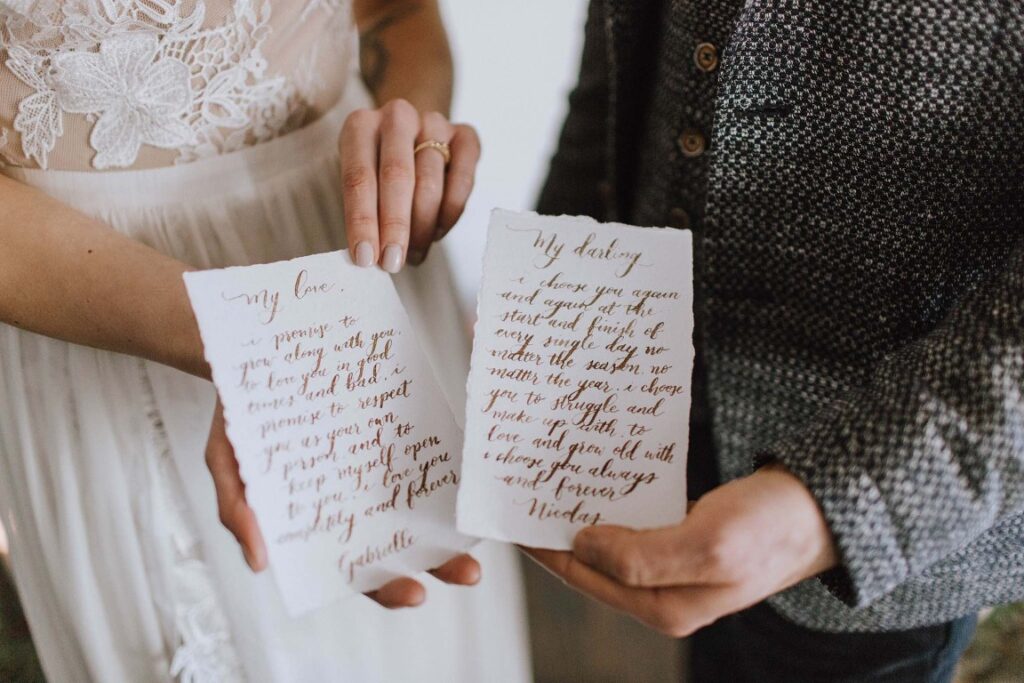 My love,
i promise to
grow along with you,
to love you in good
times and bad. i
promise to respect
you as your own
person and to
keep myself open
to you. i love you
completely and forever
Gabrielle
My darling
i choose you again
and again at the
start and finish of
every single day no
matter the season, no
matter the year. i choose
you to struggle and
make up with, to
love and grow old with
i choose you always
and forever
Nicolas